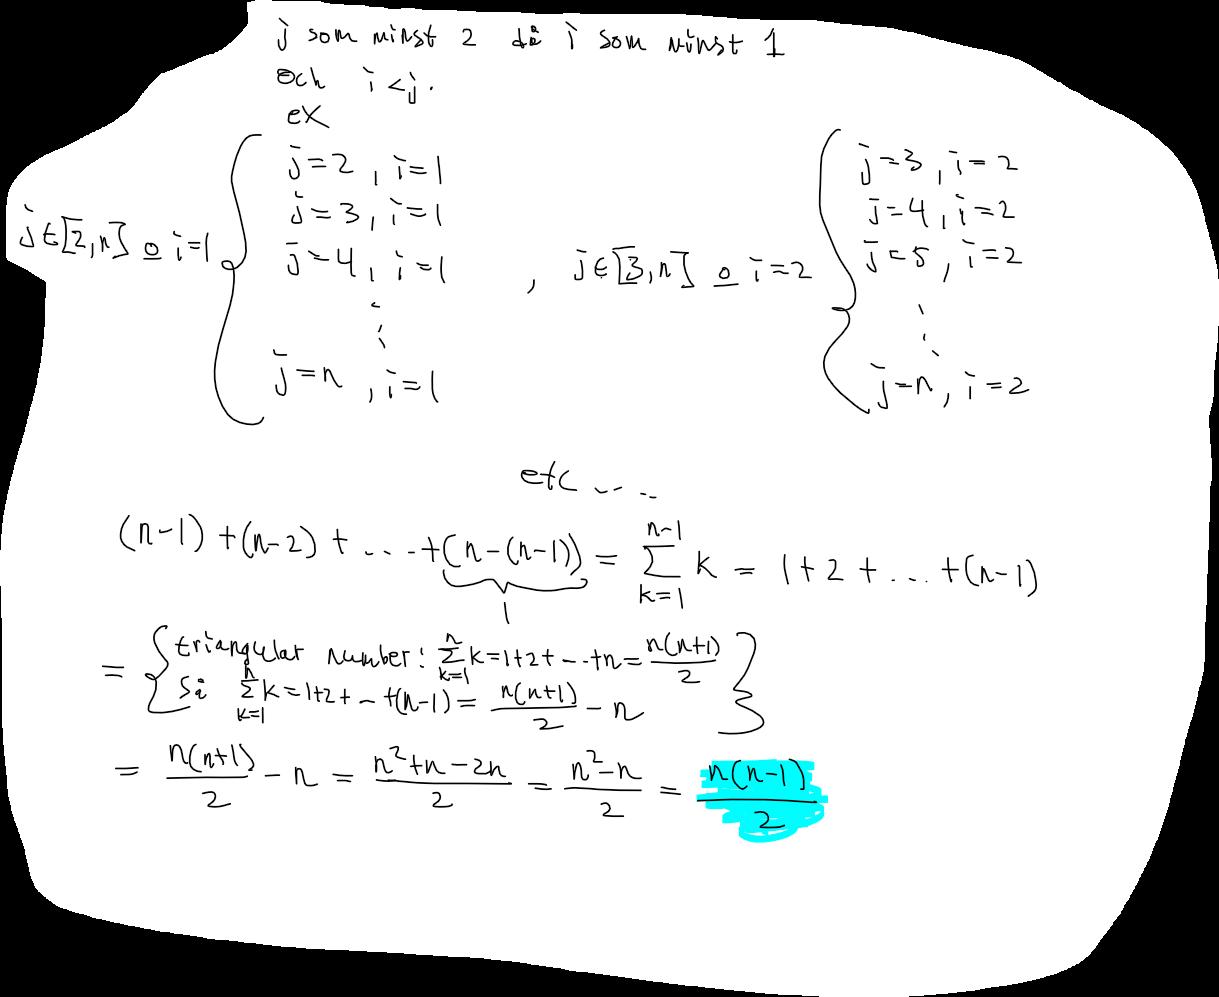 j som minst 2 då i som minst 1
och i < j.
ex
j∈[2,n] o i=1 { j=2, i=1
j=3, i=1
j=4, i=1
⋮
j=n, i=1
, j∈[3,n] o i=2 { j=3, i=2
j=4, i=2
j=5, i=2
⋮
j=n, i=2
etc ....
(n-1) + (n-2) + .... + (n-(n-1)) = ∑_{k=1}^{n-1} k = 1+2+...+(n-1)
1
= { triangular number: ∑_{k=1}^{n} k = 1+2+...+n = n(n+1)/2
så ∑_{k=1}^{n} k = 1+2+...+(n-1) = n(n+1)/2 - n }
= n(n+1)/2 - n = (n²+n-2n)/2 = (n²-n)/2 = n(n-1)/2